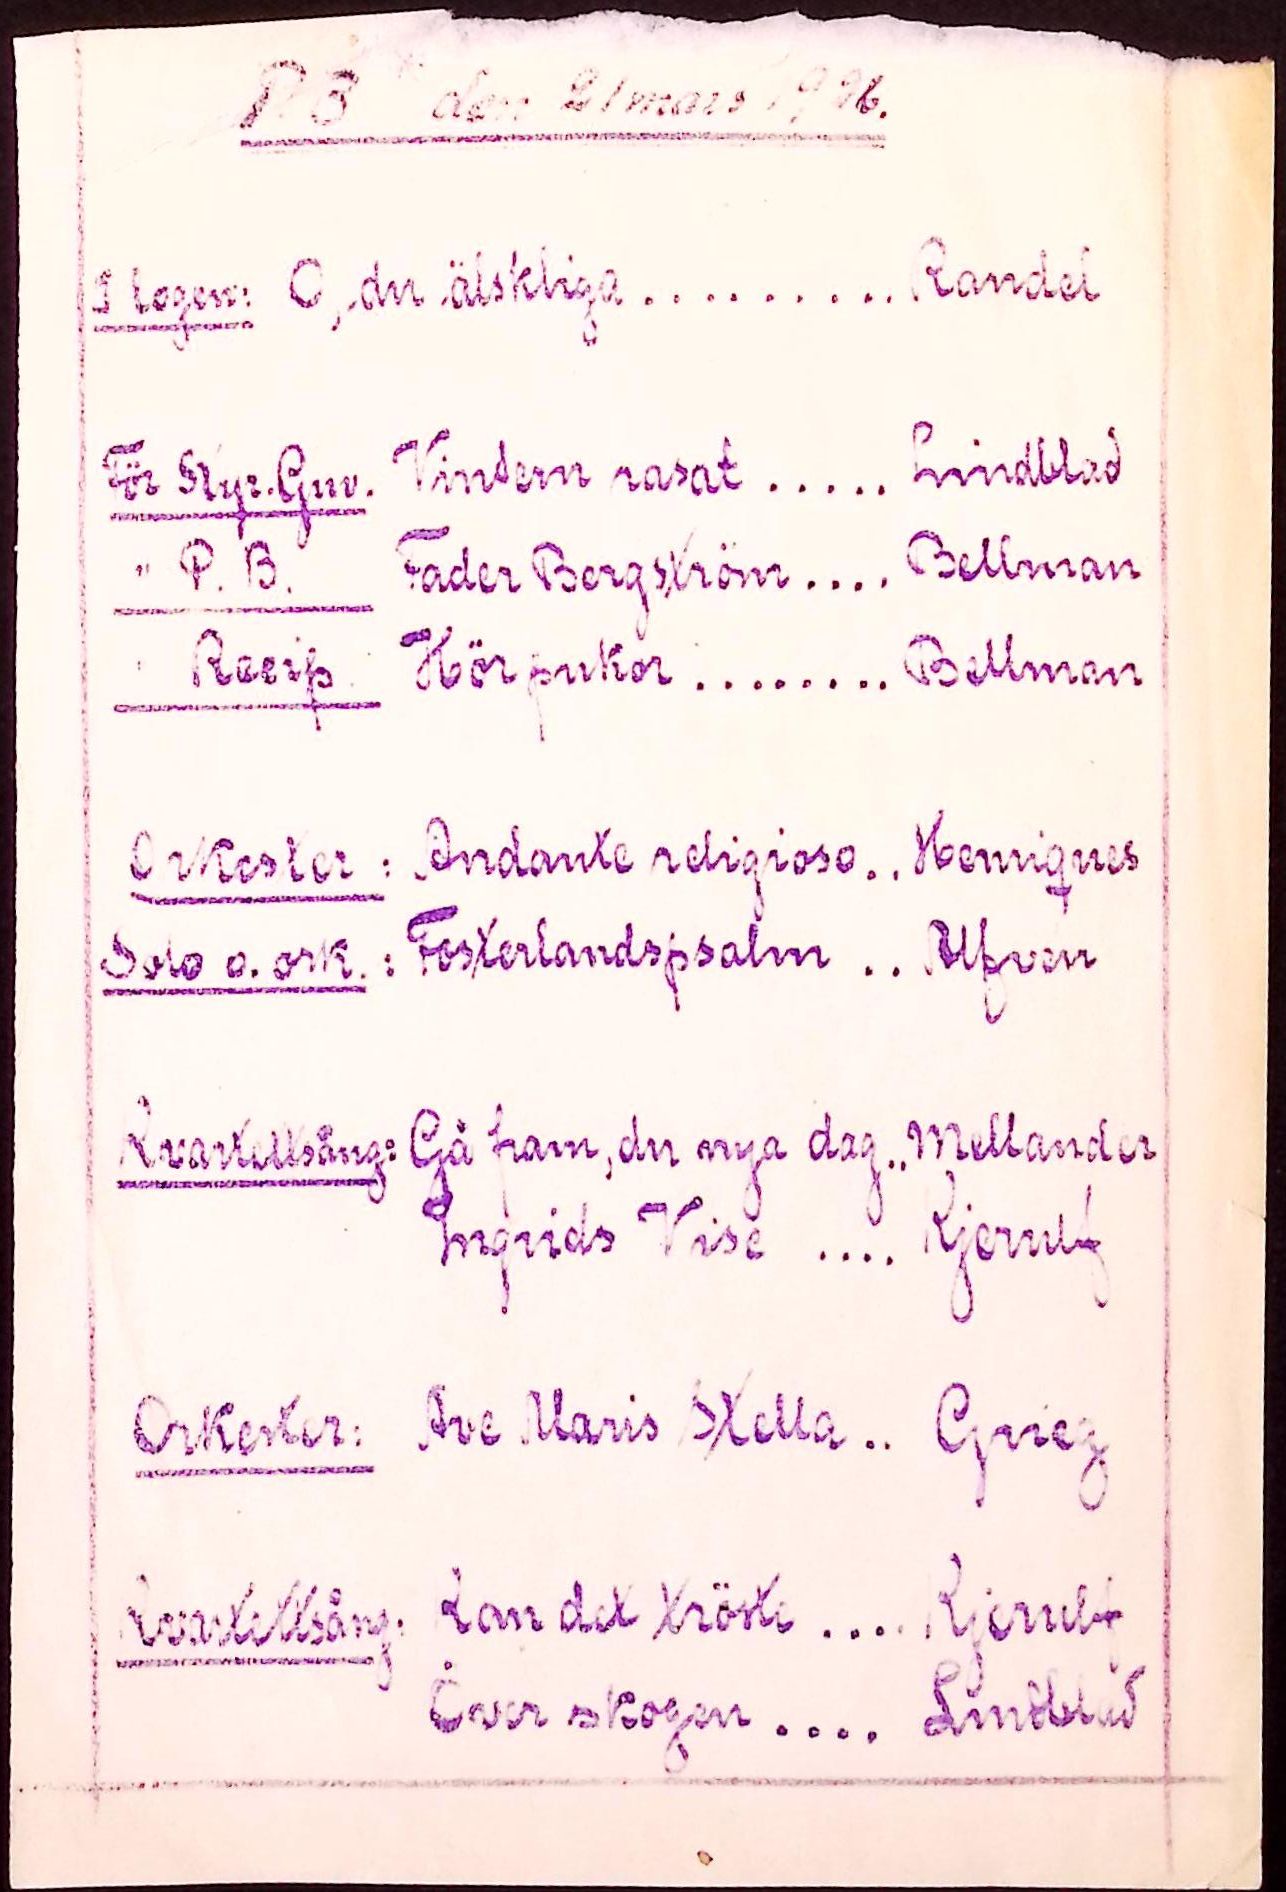 P. B den 21 mars 1926.
I logen: O, du älskliga .......... Randel
För Styr. Guv. Vintern rasat ..... Lindblad
" P. B. Fader Bergström .... Bellman
" Recip. Hör pukor ......... Bellman
Orkester: Andante religioso .. Henriques
Solo o. ork.: Fosterlandspsalm .. Alfven
Kvartettsång: Gå fram, du nya dag .. Mellander
Ingrids Vise .... Kjerulf
Orkester: Ave Maris Stella .. Grieg
Kvartettsång: Kan det tröste .... Kjerulf
Över skogen .... Lindblad